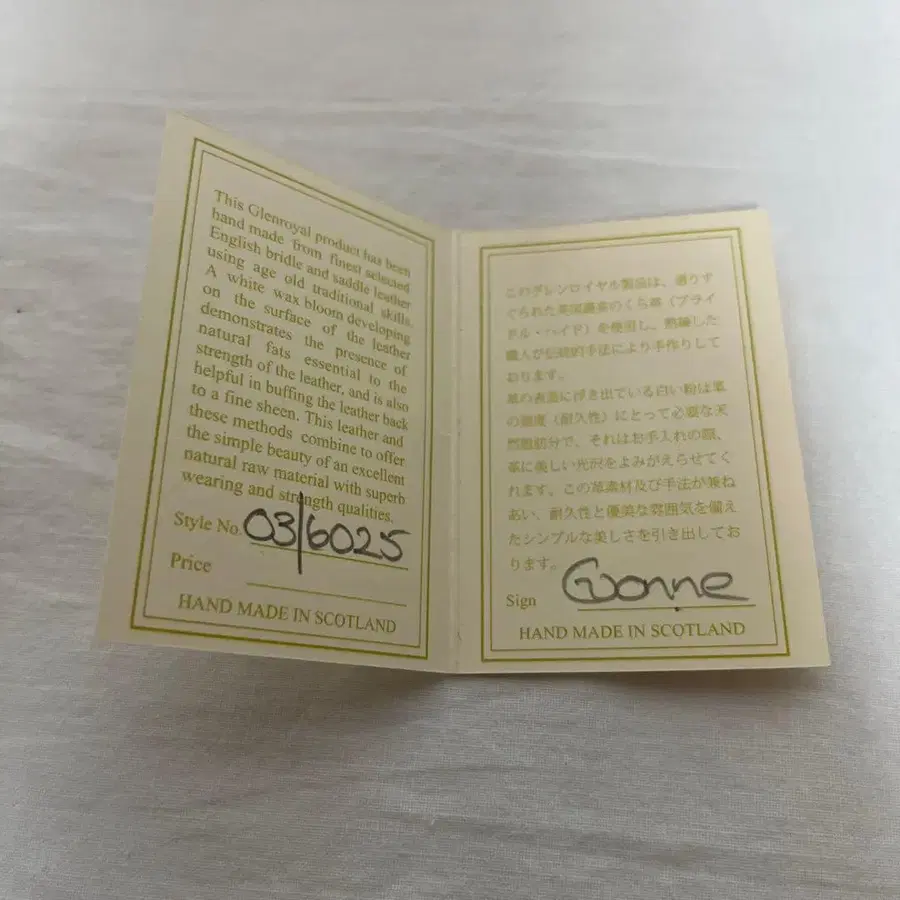 This Glenroyal product has been
hand made from finest selected
English bridle and saddle leather
using age old traditional skills.
A white wax bloom developing
on the surface of the leather
demonstrates the presence of
natural fats essential to the
strength of the leather, and is also
helpful in buffing the leather back
to a fine sheen. This leather and
these methods combine to offer
the simple beauty of an excellent
natural raw material with superb
wearing and strength qualities.
Style No. 03/6025
Price
HAND MADE IN SCOTLAND
このグレンロイヤル製品は、選りす
ぐられた英国農系のくら革（ブライ
ドル・ハイド）を使用し、熟練した
職人が伝統的手法により手作りして
おります。
革の表面に浮き出ている白い粉は革
の強度（耐久性）にとって必要な天
然脂肪分で、それはお手入れの際、
革に美しい光沢をよみがえらせてく
れます。この革素材及び手法が兼ね
あい、耐久性と優美な雰囲気を備え
たシンプルな美しさを引き出してお
ります。
Sign
HAND MADE IN SCOTLAND